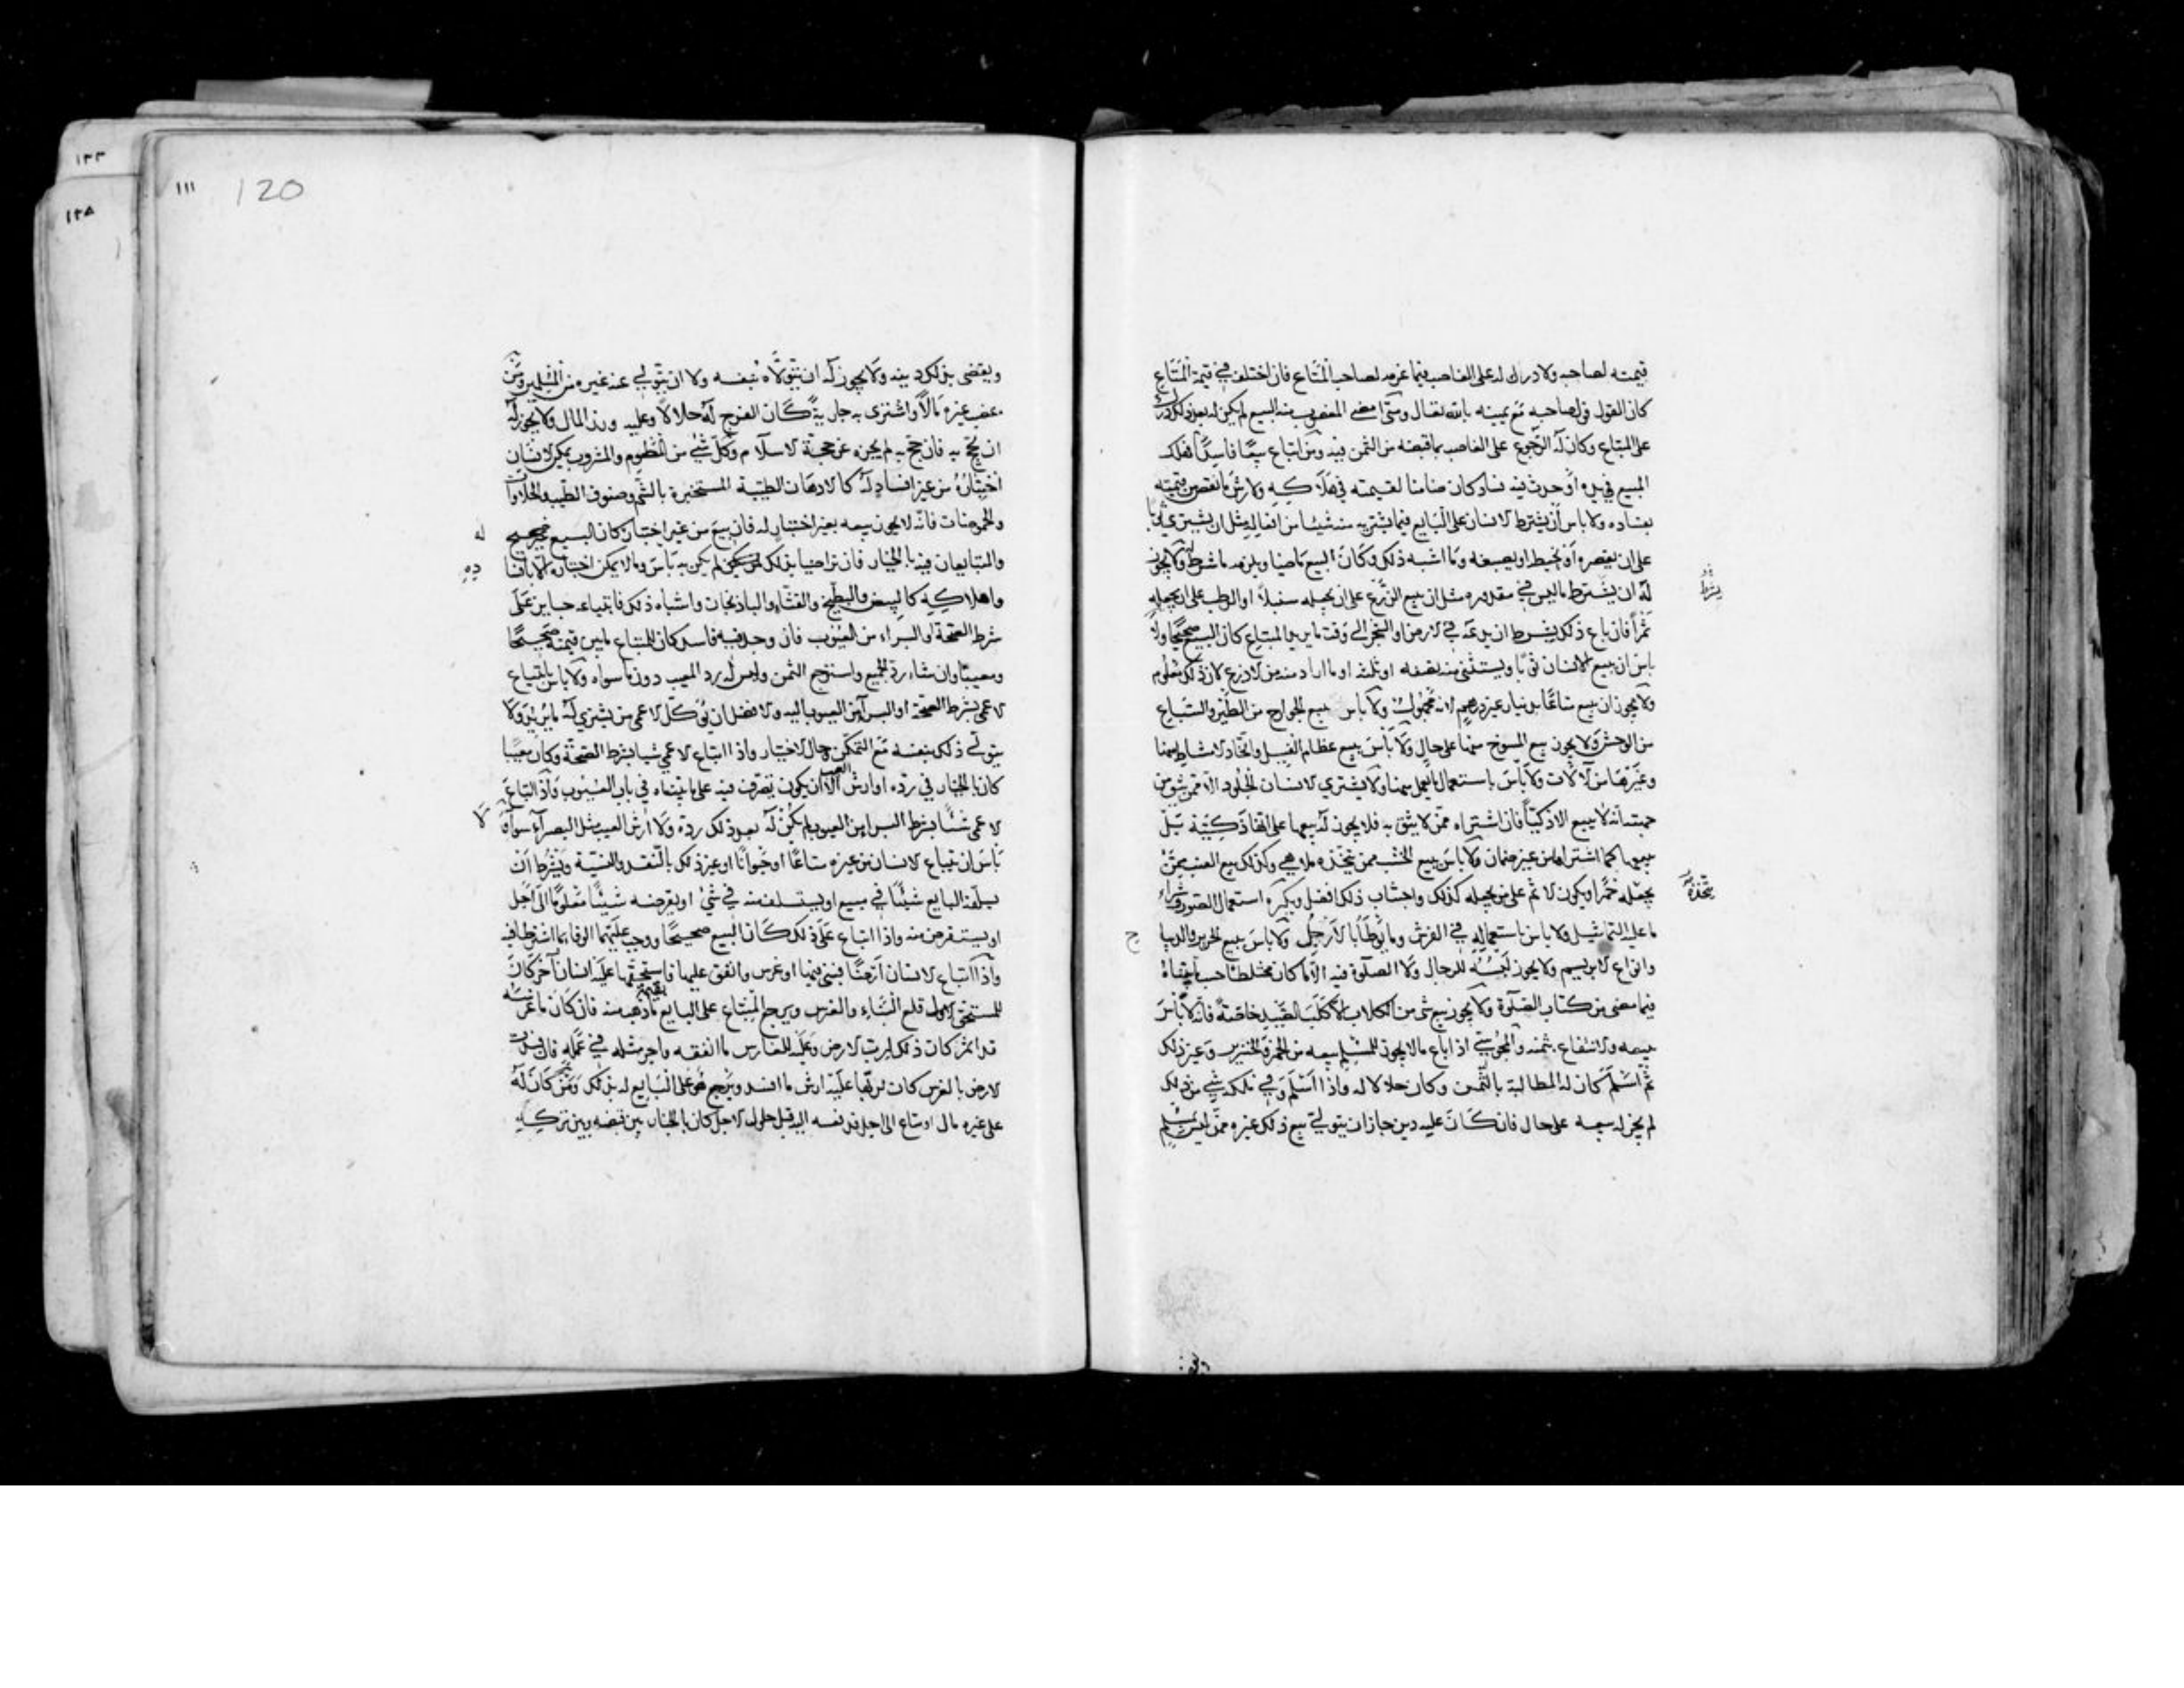 قيمته لصاحبه ولا درك له على الغاصب فيما غرمه لصاحب المتاع فان اختلف في قيمة المتاع
كان القول قول صاحبه مع يمينه بالله تعالى ومتى امضى المغصوب منه البيع لم يكن له بعد ذلك درك
على المبتاع وكان له الرجوع على الغاصب بما قبضه من الثمن فيه ومن ابتاع بيعا فاسدا فهلك
المبيع في يده او حدث فيه فساد كان ضامنا لقيمته في هلاكه ولارش ما نقص من قيمته
بفساده ولا باس ان يشترط الانسان على البايع فيما يشتريه منه شيئا من افعاله مثل ان يشتري ثوبا
على ان يقصره او يخيطه او يصبغه وما اشبه ذلك وكان البيع ماضيا ويلزمه ما شرط له ولا يجوز
له ان يشترط ما ليس في مقدوره مثل ان يبيع الزرع على ان يجعله سنبلا او الرطب على ان يجعله
تمرا فان باع ذلك بشرط ان يدعه في الارض او الشجر الى وقت ما يريد المبتاع كان البيع صحيحا ولا
باس ان يبيع الانسان ثوبا ويستثني منه نصفه او ثلثه او ما اراد منه من الاذرع لان ذلك معلوم
ولا يجوز ان يبيع متاعا بدينار غير درهم لانه مجهول ولا باس ببيع الجوارح من الطير والسباع
من الوحش ولا يجوز بيع المسوخ منها على حال ولا باس ببيع عظام الفيل واتخاذ الامشاط منها
وغيرها من الآلات ولا باس باستعمال ما يعمل منها ولا يشتري الانسان الجلود الا ممن يثق من
جهته انه لا يبيع الا ذكيا فان اشتراه ممن لا يثق به فلا يجوز له بيعها على انها ذكية بل
يبيعها كما اشتراها من غير ضمان ولا باس ببيع الخشب ممن يتخذه ملاهي وكذلك بيع العنب ممن
يجعله خمرا ويكون الاثم على من يجعله كذلك واجتناب ذلك افضل ويكره استعمال الصور وشراء
ما عليه التماثيل ولا باس باستعماله في الفرش وما يوطأ بالارجل ولا باس ببيع الحرير والديباج
وانواع الابريسم ولا يجوز لبسه للرجال ولا الصلوة فيه الا ما كان مختلطا حسب ما قدمناه
فيما مضى من كتاب الصلوة ولا يجوز بيع شى من الكلاب الا كلب الصيد خاصة فانه لا باس
ببيعه والانتفاع بثمنه والمجوسي اذا باع ما لا يجوز للمسلم بيعه من الخمر والخنزير وغير ذلك
ثم اسلم كان له المطالبة بالثمن وكان حلالا له واذا اسلم وفي ملكه شي من ذلك
لم يجز له بيعه على حال فان كان عليه دين جاز ان يتولى بيع ذلك غيره ممن ليس بمسلم
يشترط
يتخذه
ويقضى بذلك دينه ولا يجوز له ان يتولاه بنفسه ولا ان يتولى عنه غيره من المسلمين ومن
غصب غيره مالا واشترى به جارية كان الفرج له حلالا وعليه وزر المال ولا يجوز له
ان يحج به فان حج به لم يجزه عن حجة الاسلام وكل شئ من المطعوم والمشروب يمكن الانسان
اختباره من غير افساد له كالادهان الطيبة المستخبرة بالشم وصنوف الطيب والحلاوات
والحموضات فانه لا يجوز بيعه بغير اختبار له فان بيع من غير اختبار كان البيع غير صحيح
والمتبايعان فيه بالخيار فان تراضيا بذلك لم يكن به باس وما لا يمكن اختباره الا بافساده
واهلاكه كالبيض والبطيخ والقثاء والباذنجان واشباه ذلك فابتياعه جايز على
شرط الصحة او البراء من العيوب فان وجد فيه فاسد كان للمبتاع ما بين قيمته صحيحا
ومعيبا وان شاء رد الجميع واسترجع الثمن وليس له رد المعيب دون ما سواه ولا باس بابتياع
الاعمى بشرط الصحة او البراء من العيوب اليه والافضل ان يوكل الاعمى من يشتري له ما يريد ولا
يتولى ذلك بنفسه مع التمكن وحال الاختيار واذا ابتاع الاعمى شيا بشرط الصحة وكان معيبا
كان بالخيار في رده او ارش العيب الا ان يكون تصرف فيه على ما بيناه في باب العيوب واذا ابتاع
الاعمى شيئا بشرط البراء من العيوب لم يكن له بعد ذلك رده ولا ارش العيب مثل البصراء سواء ولا
باس ان يبتاع الانسان من غيره متاعا او حيوانا او غير ذلك بالنقد والنسية ويشرط ان
يسلفه البايع شيئا في مبيع او يستسلف منه في شئ او يقرضه شيئا معلوما الى اجل
او يستقرض منه واذا ابتاع على ذلك كان البيع صحيحا ووجب عليهما الوفا بما اشترطا فيه
واذا ابتاع الانسان ارضا فبنى فيها او غرس وانفق عليها فاستحقها عليه انسان آخر كان
للمستحق الاول قلع البناء والغرس ويرجع المبتاع على البايع بقيمة ما ذهب منه فان كان ما غرسه
قد اثمر كان ذلك لرب الارض وعليه للغارس ما انفقه واجر مثله في عمله فان فسدت
الارض بالغرس كان لربها عليه ارش ما افسد ويرجع هو على البايع له بذلك ومن كان له
على غيره مال او متاع الى اجل فدفعه اليه قبل حلول الاجل كان بالخيار بين قبضه وبين تركه
له
ده
لا
١١١
120
١٢٣
١٢٨